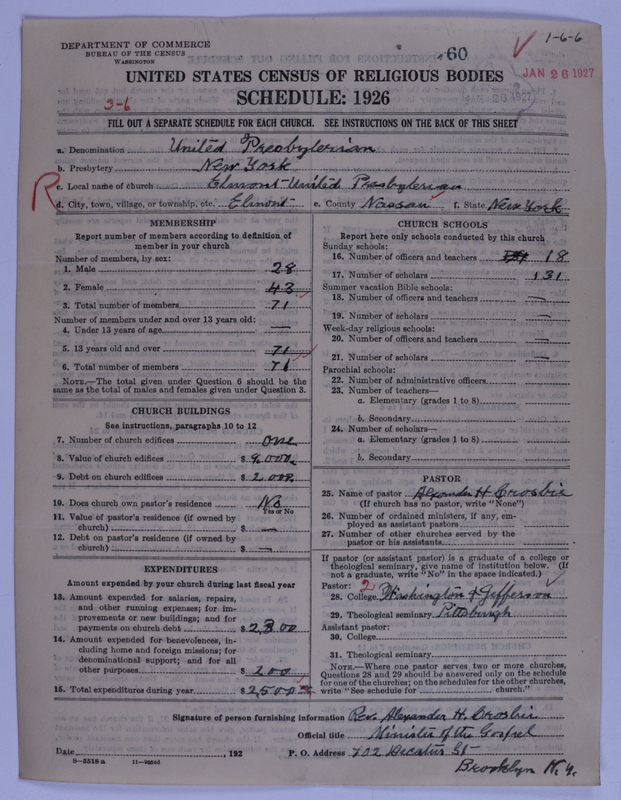 DEPARTMENT OF COMMERCE
BUREAU OF THE CENSUS
WASHINGTON
60
1-6-6
JAN 26 1927
UNITED STATES CENSUS OF RELIGIOUS BODIES
JAN 26 1927
SCHEDULE: 1926
3-6
FILL OUT A SEPARATE SCHEDULE FOR EACH CHURCH. SEE INSTRUCTIONS ON THE BACK OF THIS SHEET
a. Denomination United Presbyterian
b. Presbytery New York
c. Local name of church Elmont-United Presbyterian
R
d. City, town, village, or township, etc. Elmont e. County Nassau f. State New York
MEMBERSHIP
Report number of members according to definition of
member in your church
Number of members, by sex:
1. Male 28
2. Female 43
3. Total number of members 71
Number of members under and over 13 years old:
4. Under 13 years of age —
5. 13 years old and over 71
6. Total number of members 71
NOTE.—The total given under Question 6 should be the
same as the total of males and females given under Question 3.
CHURCH BUILDINGS
See instructions, paragraphs 10 to 12
7. Number of church edifices one
8. Value of church edifices $ 9000.
9. Debt on church edifices $ 2000.
10. Does church own pastor's residence No
Yes or No
11. Value of pastor's residence (if owned by
church) $ —
12. Debt on pastor's residence (if owned by
church) $ —
EXPENDITURES
Amount expended by your church during last fiscal year
13. Amount expended for salaries, repairs,
and other running expenses; for im-
provements or new buildings; and for
payments on church debt $ 2300
14. Amount expended for benevolences, in-
cluding home and foreign missions; for
denominational support; and for all
other purposes. $ 200
15. Total expenditures during year $ 2500
CHURCH SCHOOLS
Report here only schools conducted by this church
Sunday schools:
16. Number of officers and teachers 18
17. Number of scholars 131
Summer vacation Bible schools:
18. Number of officers and teachers —
19. Number of scholars —
Week-day religious schools:
20. Number of officers and teachers —
21. Number of scholars —
Parochial schools:
22. Number of administrative officers
23. Number of teachers—
a. Elementary (grades 1 to 8)
b. Secondary
24. Number of scholars—
a. Elementary (grades 1 to 8)
b. Secondary
PASTOR
25. Name of pastor Alexander H Crosbie
(If church has no pastor, write "None")
26. Number of ordained ministers, if any, em-
ployed as assistant pastors
27. Number of other churches served by the
pastor or his assistants
If pastor (or assistant pastor) is a graduate of a college or
theological seminary, give name of institution below. (If
not a graduate, write "No" in the space indicated.)
Pastor: 2
28. College Washington & Jefferson
29. Theological seminary Pittsburgh
Assistant pastor:
30. College
31. Theological seminary
NOTE.—Where one pastor serves two or more churches,
Questions 28 and 29 should be answered only on the schedule
for one of the churches; on the schedules for the other churches,
write "See schedule for church."
Signature of person furnishing information Rev. Alexander H. Crosbie
Official title Minister of the Gospel
Date , 192 P. O. Address 702 Decatur St
8-5518 a
Brooklyn N.Y.